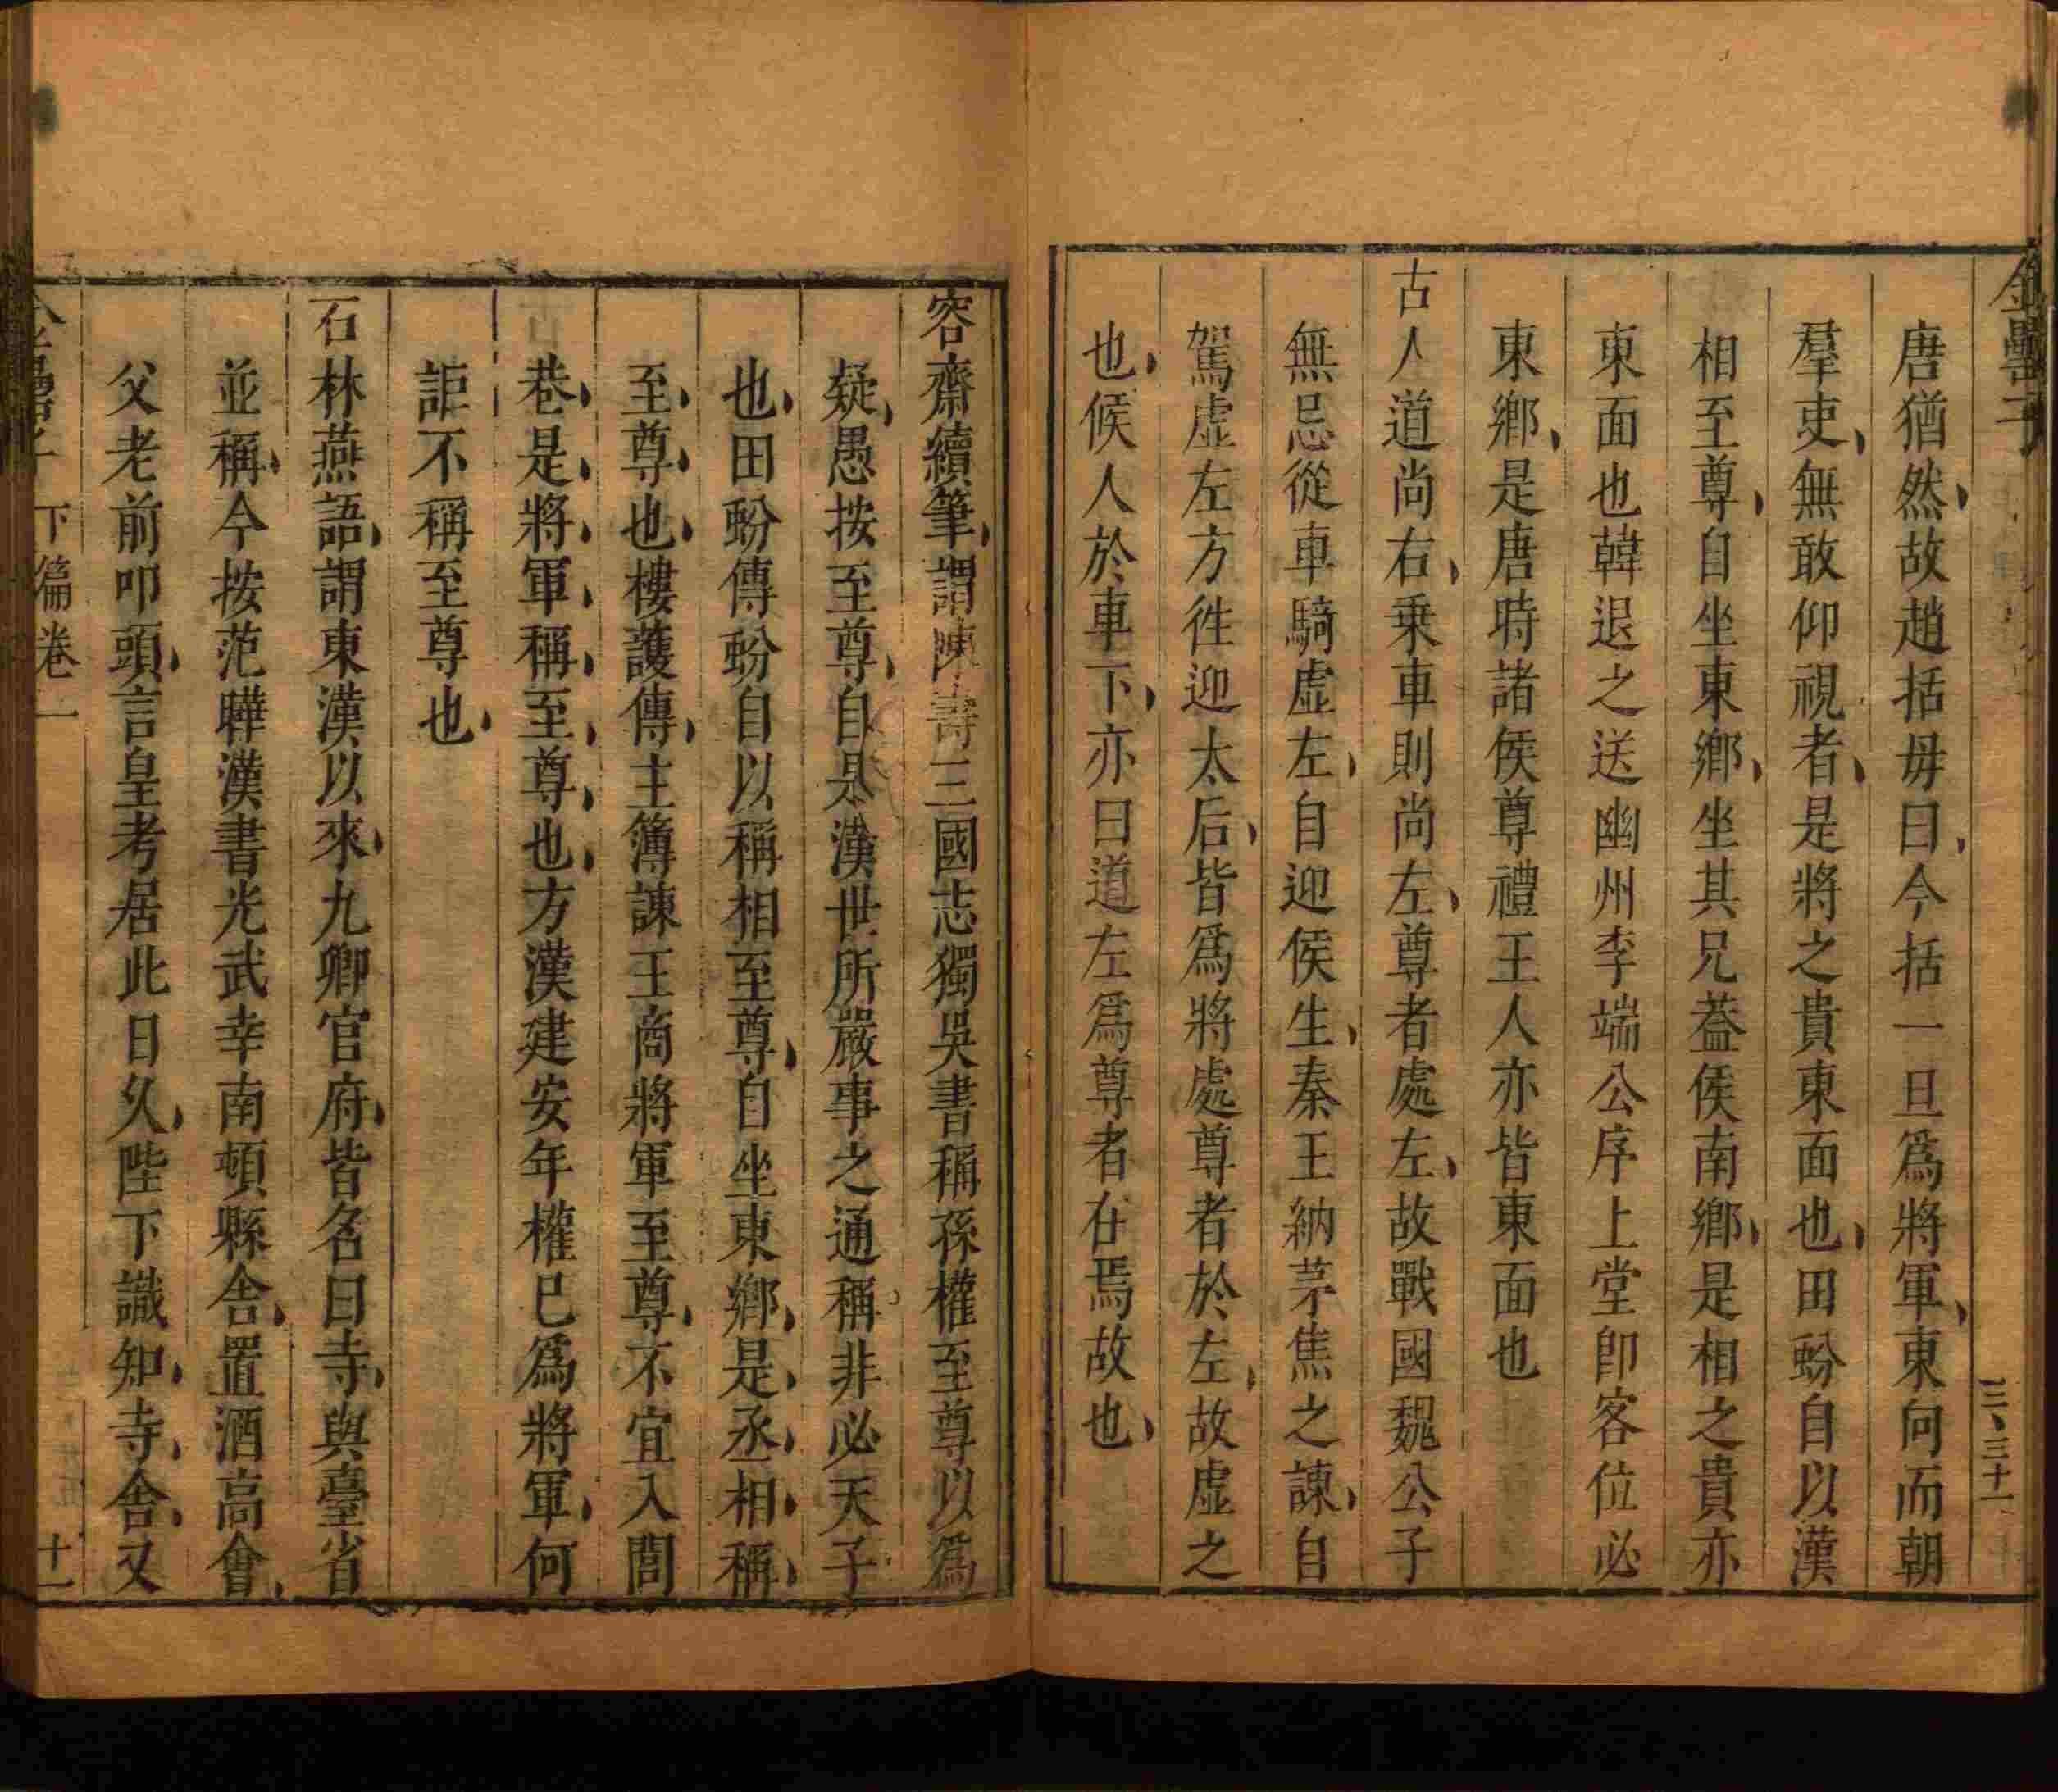 金罍子
三、三十一
唐猶然、故趙括母曰、今括一旦爲將軍、東向而朝
羣吏、無敢仰視者、是將之貴東面也、田蚡自以漢
相至尊、自坐東鄉、坐其兄葢侯南鄉、是相之貴亦
東面也韓退之送幽州李端公序上堂卽客位必
東鄉、是唐時諸侯尊禮王人亦皆東面也
古人道尚右、乗車則尚左、尊者處左、故戰國魏公子
無忌從車騎虛左、自迎侯生、秦王納茅焦之諫、自
駕虛左方徃迎太后、皆爲將處尊者於左、故虛之
也、候人於車下、亦曰道左爲尊者在焉故也、
容齋續筆、謂陳壽三國志獨吳書稱孫權至尊以爲
疑、愚按至尊、自是漢世所嚴事之通稱非必天子
也、田蚡傳蚡自以稱相至尊、自坐東鄉、是、丞、相、稱、
至、尊、也、樓護傳、主簿諫王商將軍至尊、不宜入閭
巷、是、將、軍、稱、至、尊、也、方漢建安年權已爲將軍、何
詎不稱至尊也、
石林燕語、謂東漢以來、九卿官府、皆名曰寺、與臺省
並稱、今按范曄漢書光武幸南頓縣舍、置酒高會、
父老前叩頭、言皇考居此日久、陛下識知、寺、舍、又
金罍子 下篇卷一 十一